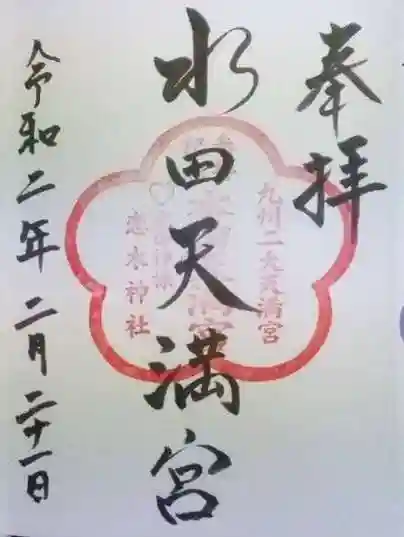 奉拝
水田天満宮
令和二年二月二十一日
九州二大天満宮
恋木神社